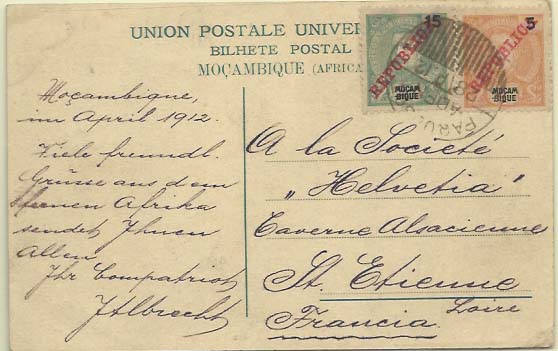 UNION POSTALE UNIVER
BILHETE POSTAL
MOÇAMBIQUE (AFRICA
15
REPUBLICA
MOÇAM
BIQUE
5
REPUBLICA
MOÇAM
BIQUE
PAQUE
Moçambique,
im April 1912.
Viele freundl.
Grüsse aus dem
fernen Afrika
sendet Ihnen
Allen
Ihr Compatriot
A la Societé
"Helvetia"
Taverne Alsacienne
St. Etienne
Loire
Francia.